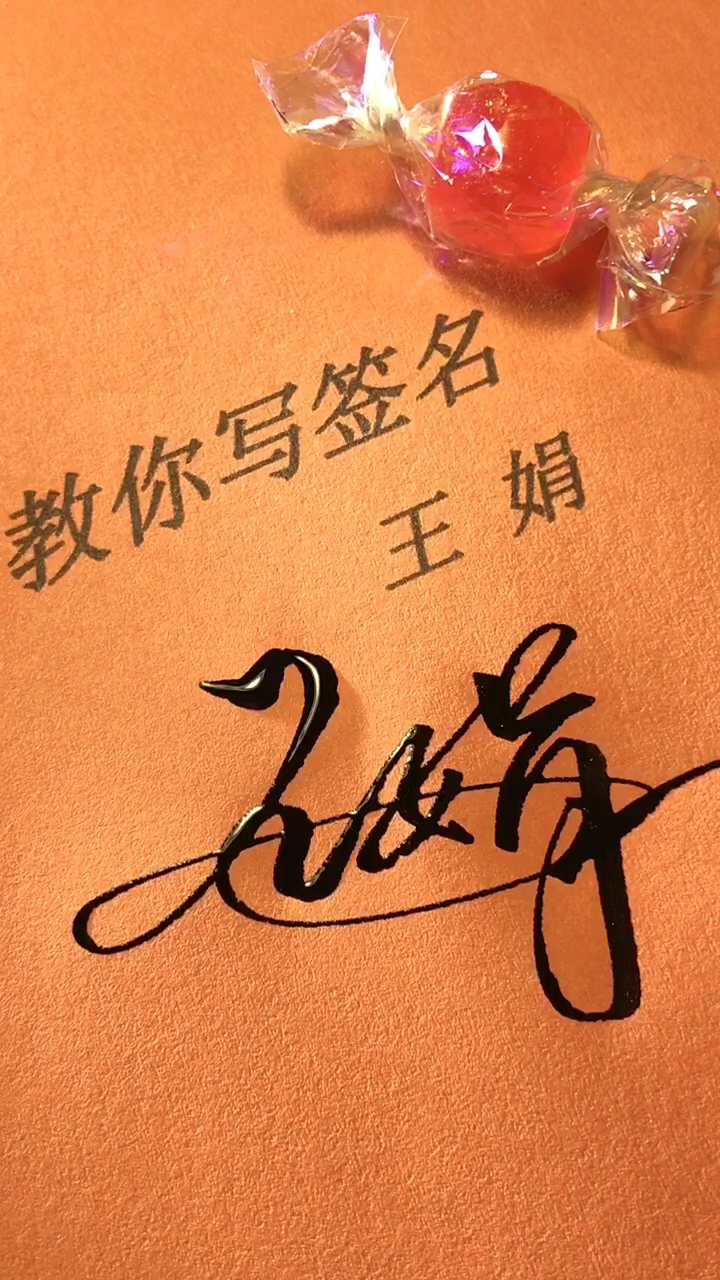 教你写签名
王娟
王娟